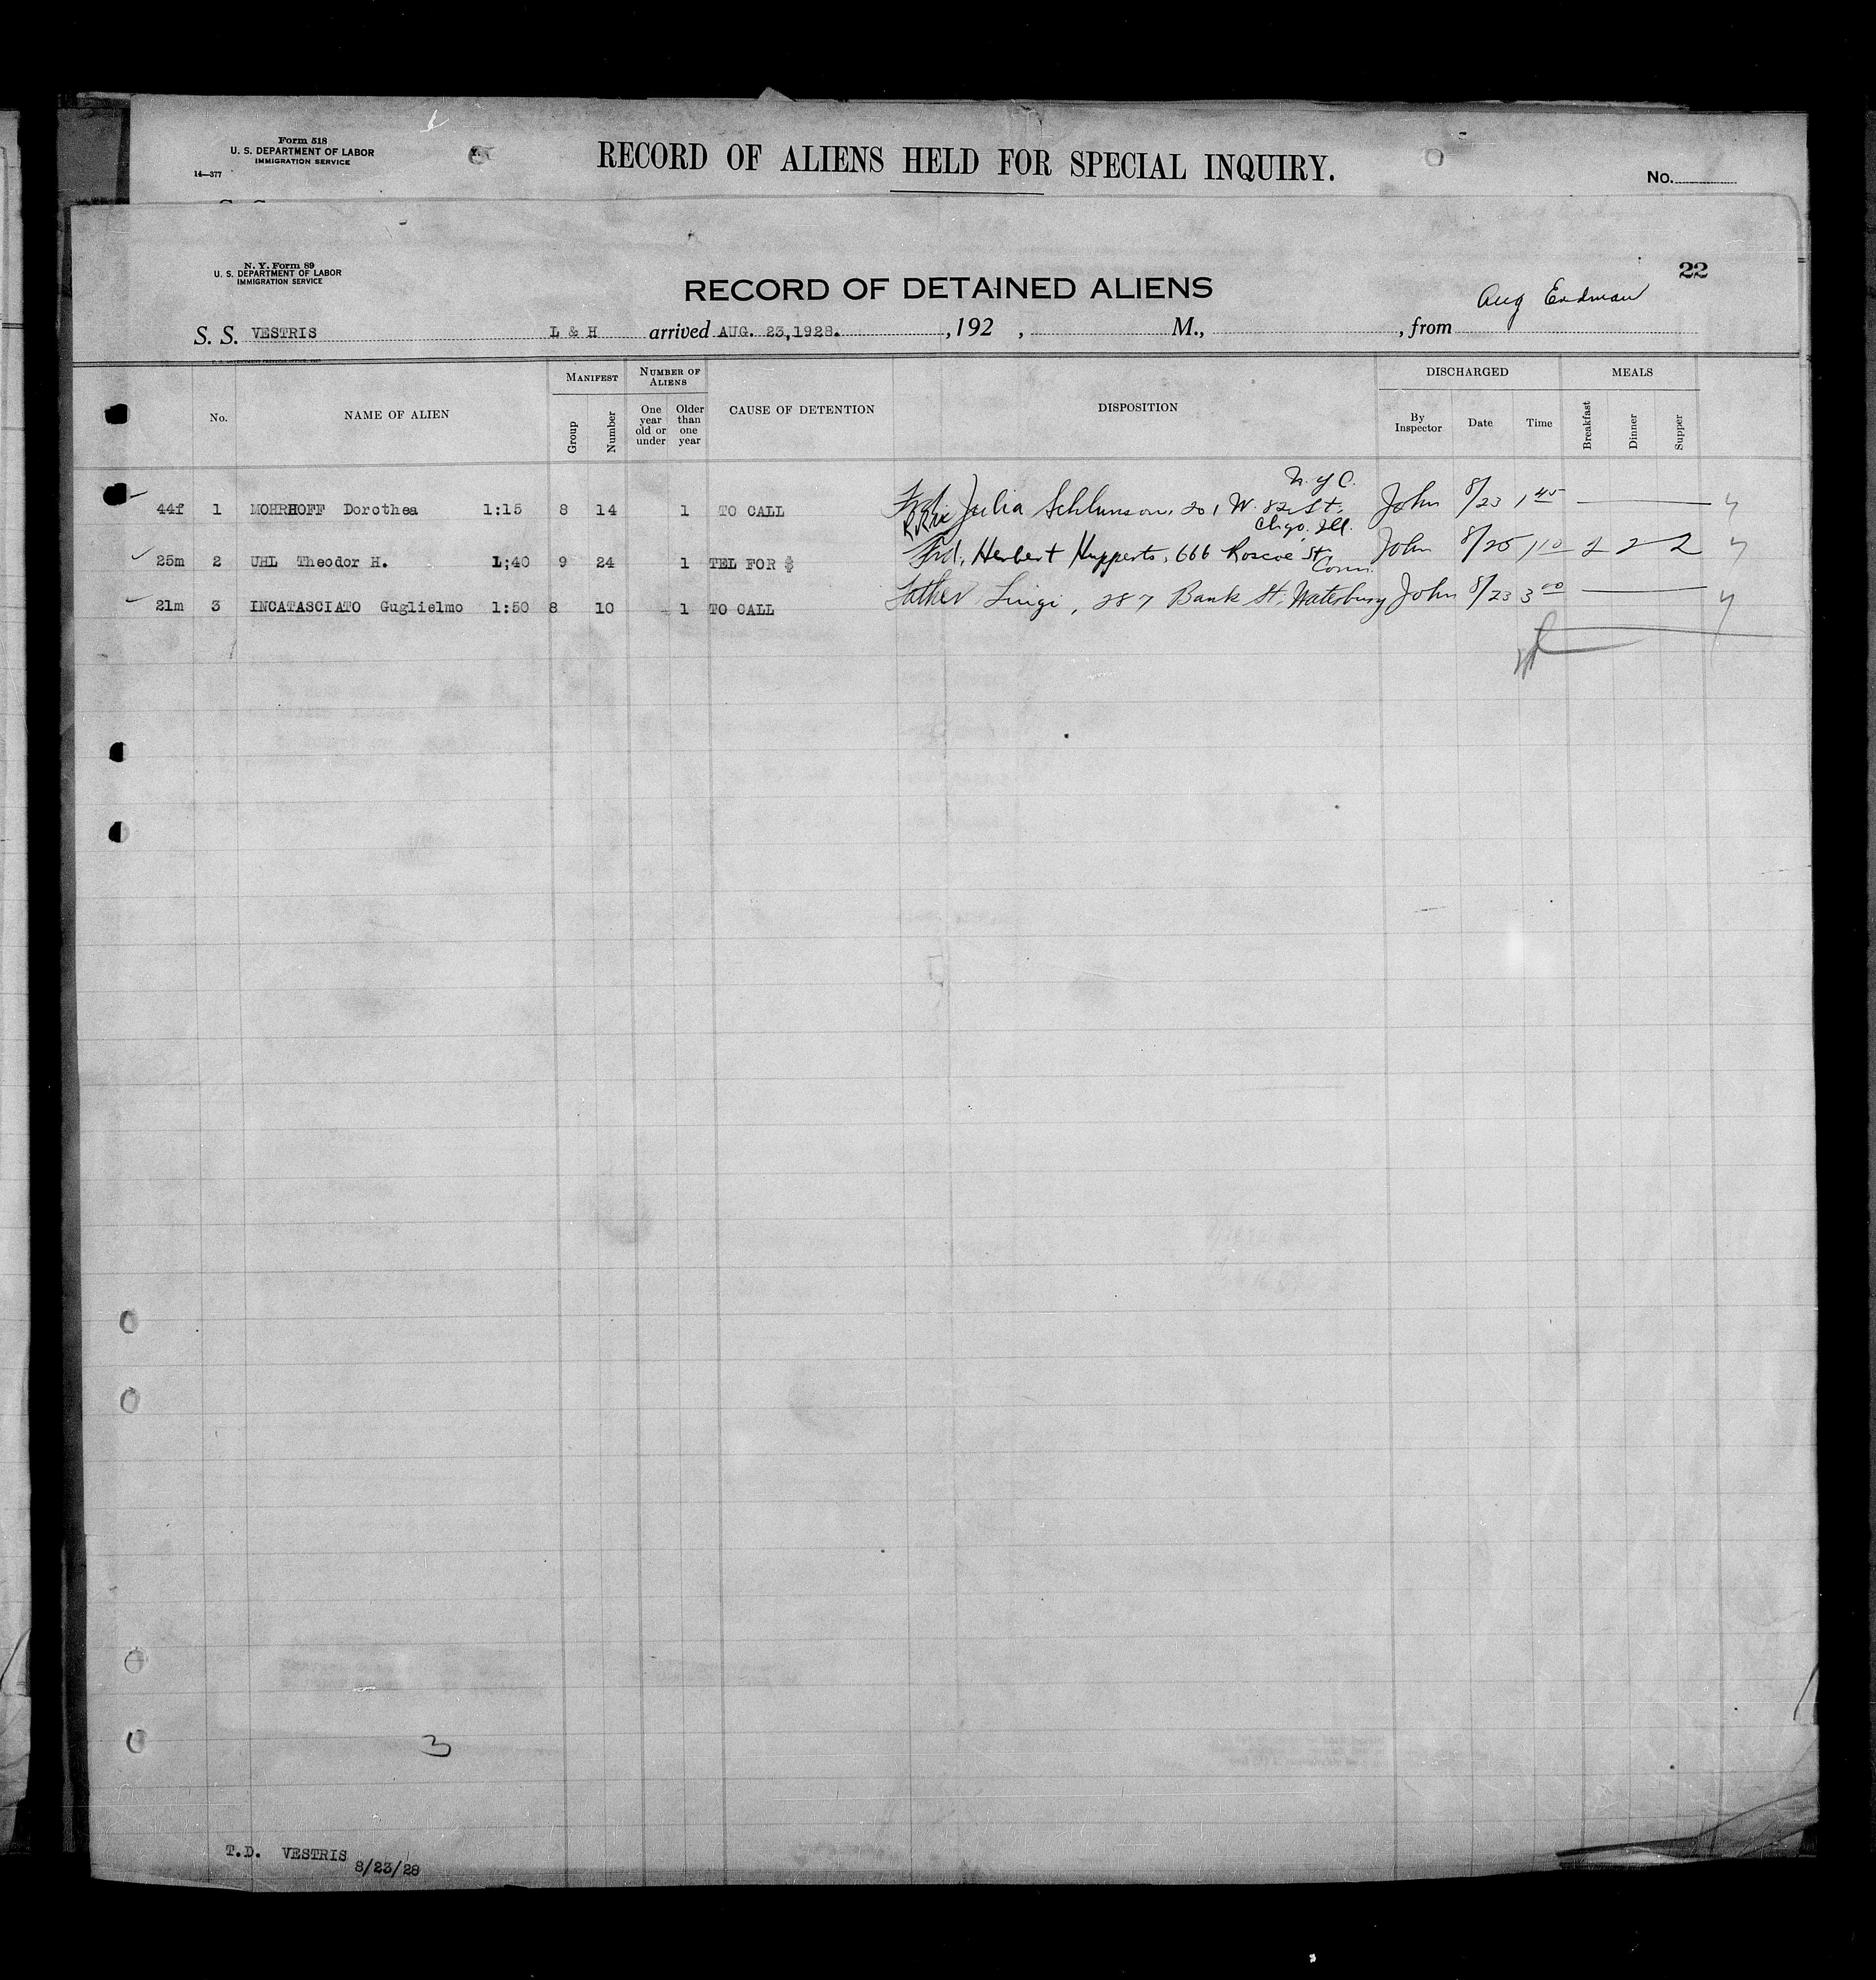 Form 518
U. S. DEPARTMENT OF LABOR
IMMIGRATION SERVICE
14—377
RECORD OF ALIENS HELD FOR SPECIAL INQUIRY.
No.
N. Y. Form 89
U. S. DEPARTMENT OF LABOR
IMMIGRATION SERVICE
22
RECORD OF DETAINED ALIENS
Aug Erdman
S. S. VESTRIS L & H arrived AUG. 23,1928. , 192 , M., , from
No. NAME OF ALIEN MANIFEST Group Number NUMBER OF ALIENS One year old or under Older than one year CAUSE OF DETENTION DISPOSITION DISCHARGED By Inspector Date Time MEALS Breakfast Dinner Supper
N.Y.C.
44f 1 MOHRHOFF Dorothea 1:15 8 14 1 TO CALL Julia Schlunson, 201 W. 82 St. John 8/23 1 45
Chgo. Ill.
25m 2 UHL Theodor H. 1;40 9 24 1 TEL FOR $ Frd. Herbert Hupperts, 666 Roscoe St John 8/25 1 10 2 2 2
Conn.
21m 3 INCATASCIATO Guglielmo 1:50 8 10 1 TO CALL Father Luigi, 287 Bank St, Waterbury John 8/23 3 00
3
T.D. VESTRIS
8/23/28